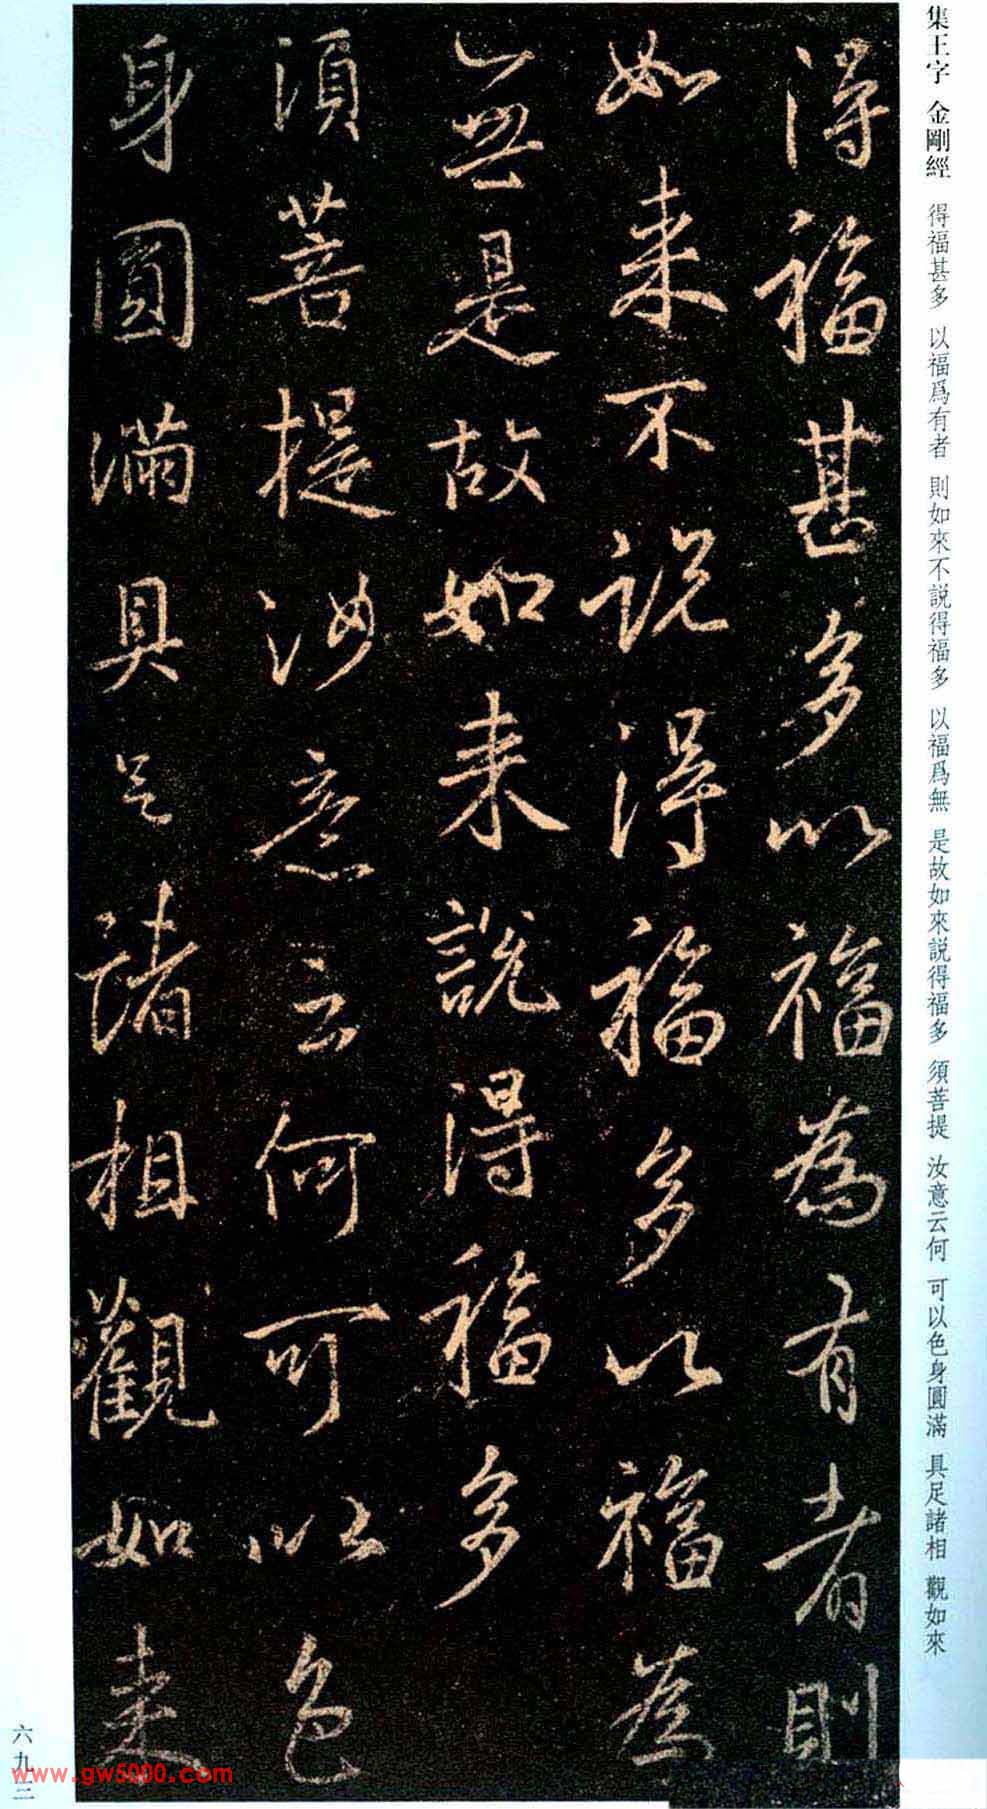 集王字 金剛經 得福甚多 以福爲有者 則如來不説得福多 以福爲無 是故如來説得福多 須菩提 汝意云何 可以色身圓滿 具足諸相 觀如來
得福甚多以福為有者則
如来不説得福多以福為
無是故如来説得福多
須菩提汝意云何可以色
身圓滿具足諸相觀如来
六九三
www.gw5000.com